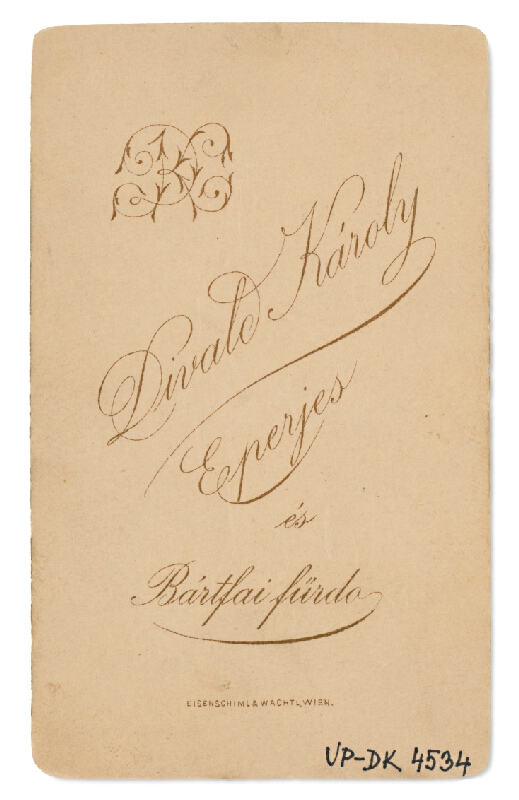 Divald Károly
Eperjes
és
Bártfai fürdo
EISENSCHIML & WACHTL, WIEN.
UP-DK 4534